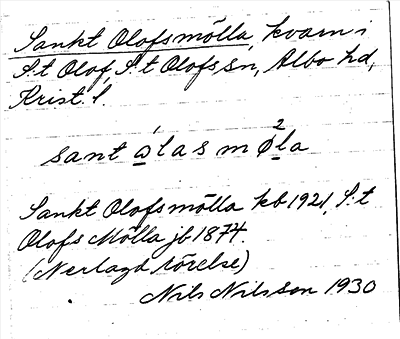 Sankt Olofsmölla, kvarn i
S:t Olof, S:t Olofs sn, Albo hd,
Krist. l.
sant ɷ̲́las mø̲²la
Sankt Olofsmölla kb 1921, S:t
Olofs Mölla jb 1874.
(Nerlagd rörelse)
Nils Nilsson 1930